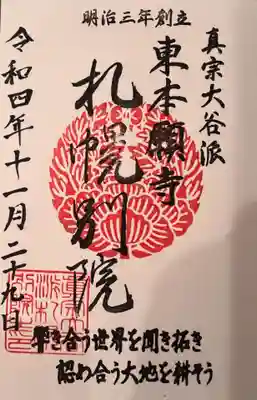 明治三年創立
真宗大谷派
東本願寺
札幌別院
令和四年十一月二十九日
き合う世界を聞き拓き
認め合う大地を耕そう